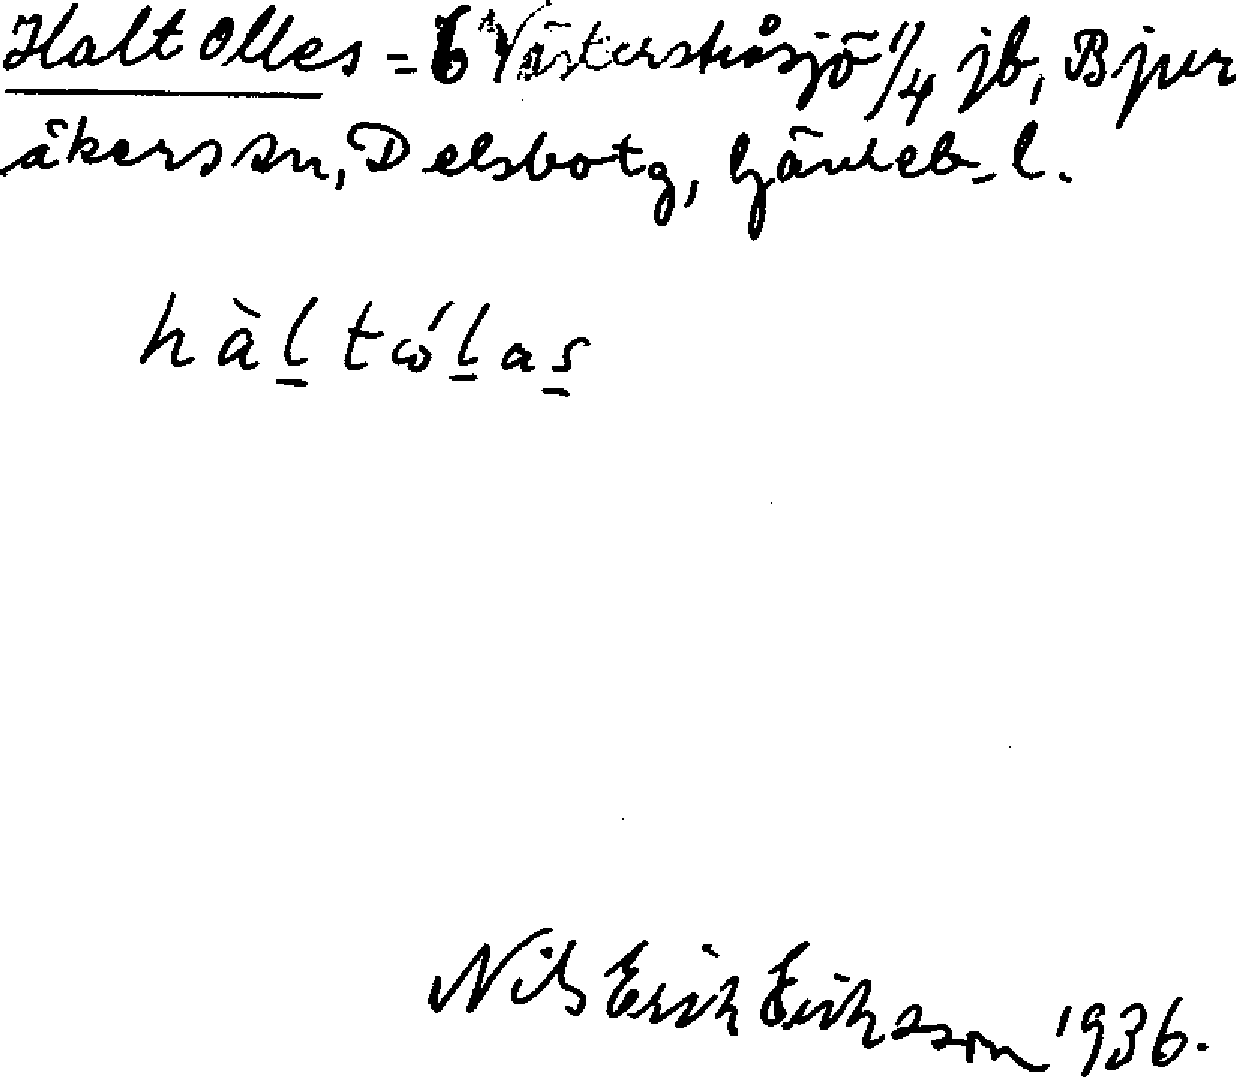 Halt Olles = 6 Västerstråsjö 1/4 jb, Bjur
åkers sn, Delsbo tg, Gävleb. l.
hàl tɷ́las
Nils Erich Erikson 1936.